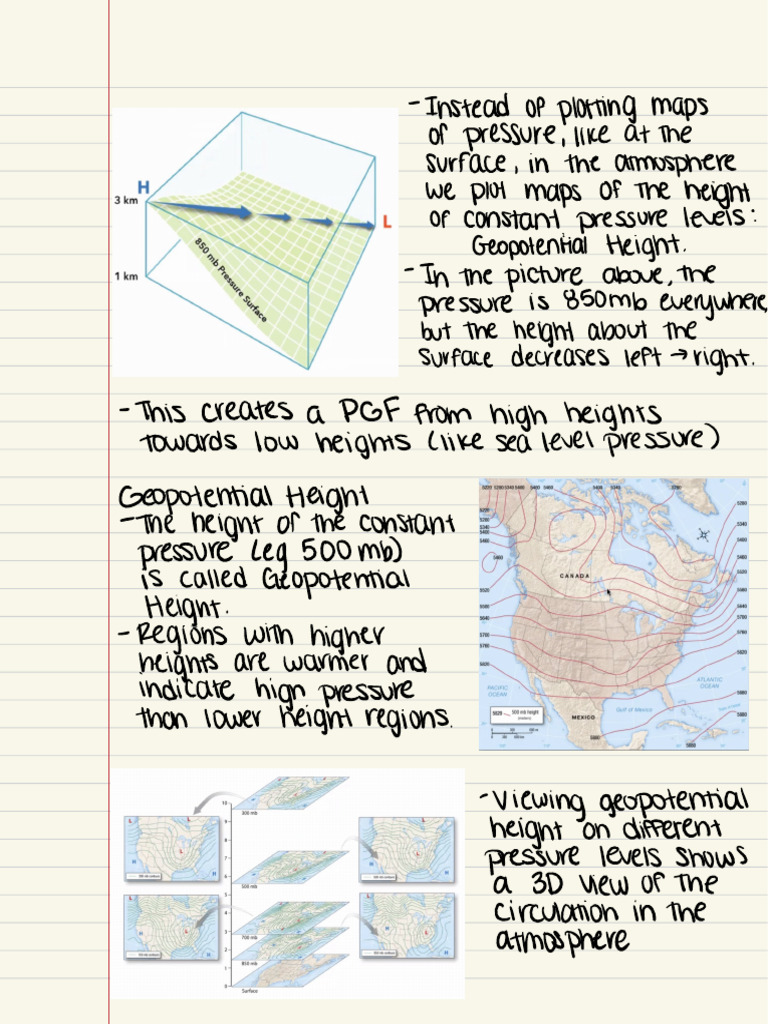 - Instead of plotting maps
of pressure, like at the
surface, in the atmosphere
we plot maps of the height
of constant pressure levels:
Geopotential Height.
- In the picture above, the
pressure is 850mb everywhere,
but the height about the
surface decreases left → right.
H
3 km
L
1 km
850 mb Pressure Surface
- This creates a PGF from high heights
towards low heights (like sea level pressure)
Geopotential Height
- The height of the constant
pressure (eg 500mb)
is called Geopotential
Height.
- Regions with higher
heights are warmer and
indicate high pressure
than lower height regions.
CANADA
PACIFIC
OCEAN
ATLANTIC
OCEAN
Gulf of Mexico
MEXICO
500 mb height
10
9
300 mb
8
7
6
500 mb
5
4
3
700 mb
2
850 mb
1
0
Surface
- Viewing geopotential
height on different
pressure levels shows
a 3D view of the
circulation in the
atmosphere